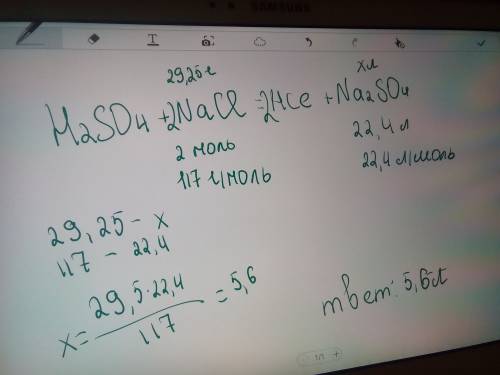 SAMSUNG
T
29,25г хл
H2SO4 + 2NaCl = 2HCl + Na2SO4
2 моль 22,4 л
117 г/моль 22,4 л/моль
29,25 - x
117 - 22,4
x = 29,5·22,4 / 117 = 5,6
твет: 5,6л
1/1 +